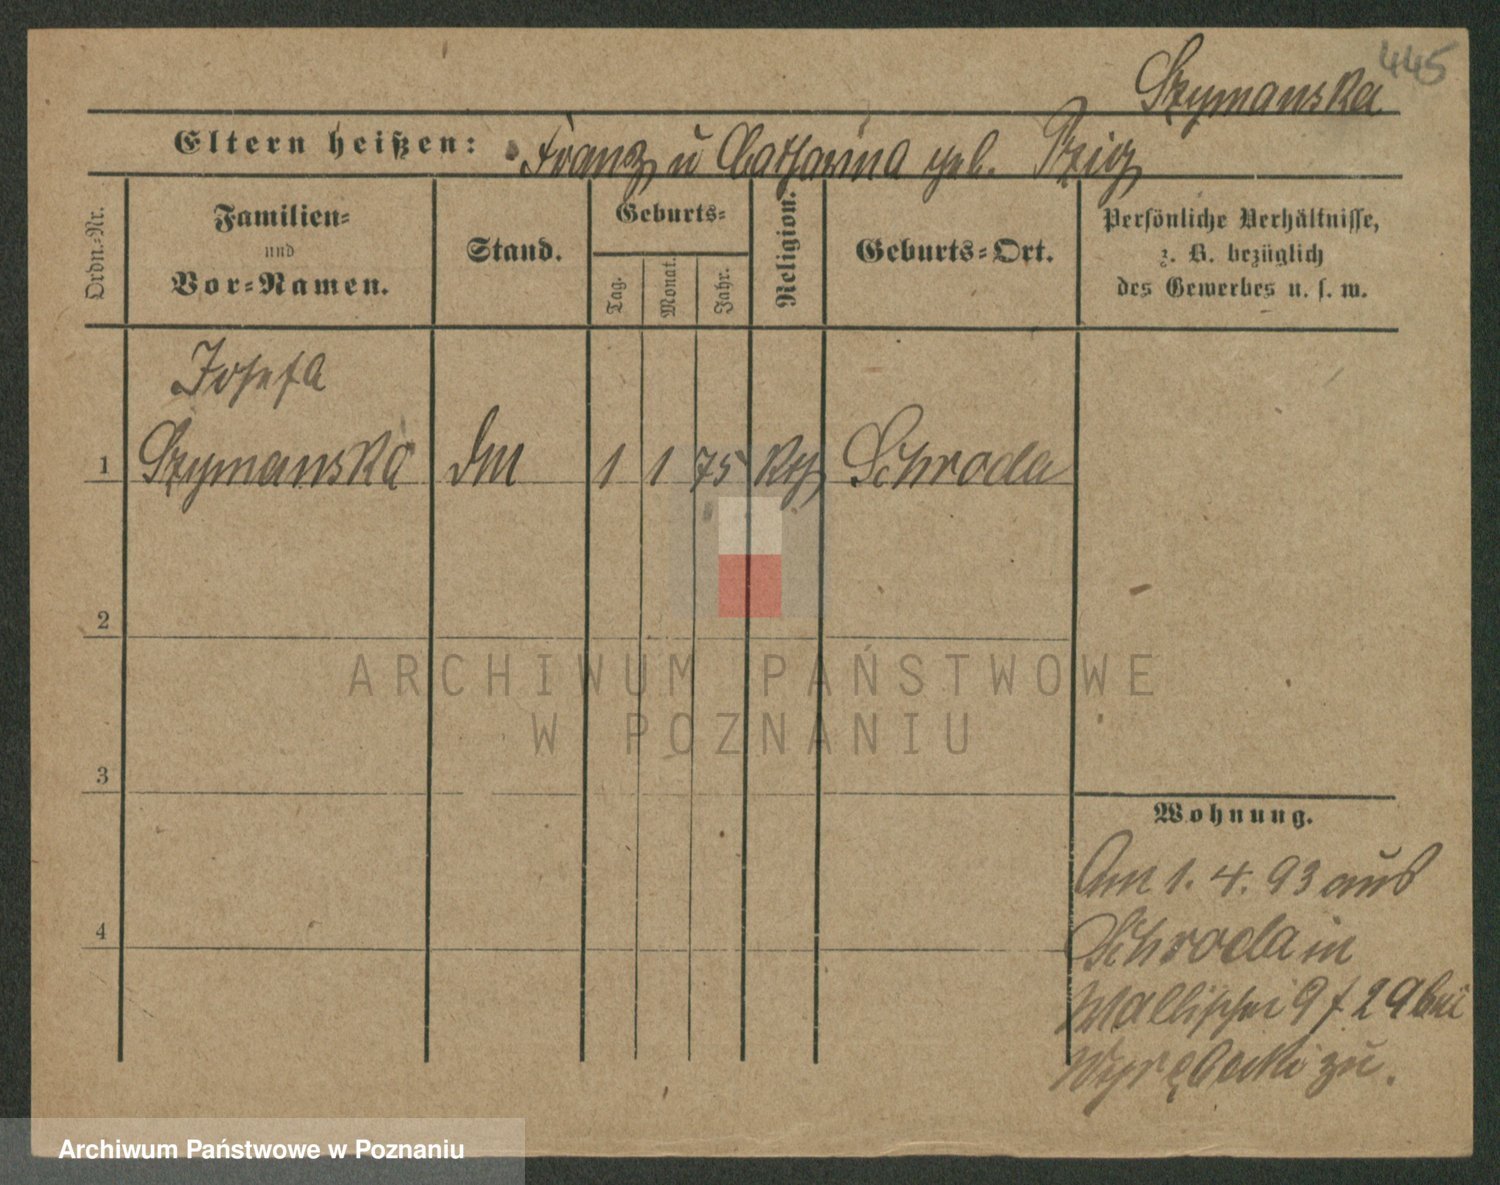 445
Szymanska
Eltern heißen: Franz u Catharina geb.
Ordn.-Nr.
Familien-
und
Vor-Namen.
Stand.
Geburts-
Tag.
Monat.
Jahr.
Religion.
Geburts-Ort.
Persönliche Verhältnisse,
z. B. bezüglich
des Gewerbes u. s. w.
Josefa
1 Szymanska 1 1 75 Kth Schroda
2
3
4
Wohnung.
Am 1. 4. 93 aus
Schroda in
Wallischei 9 29 bei
zu.
ARCHIWUM PAŃSTWOWE
W POZNANIU
Archiwum Państwowe w Poznaniu